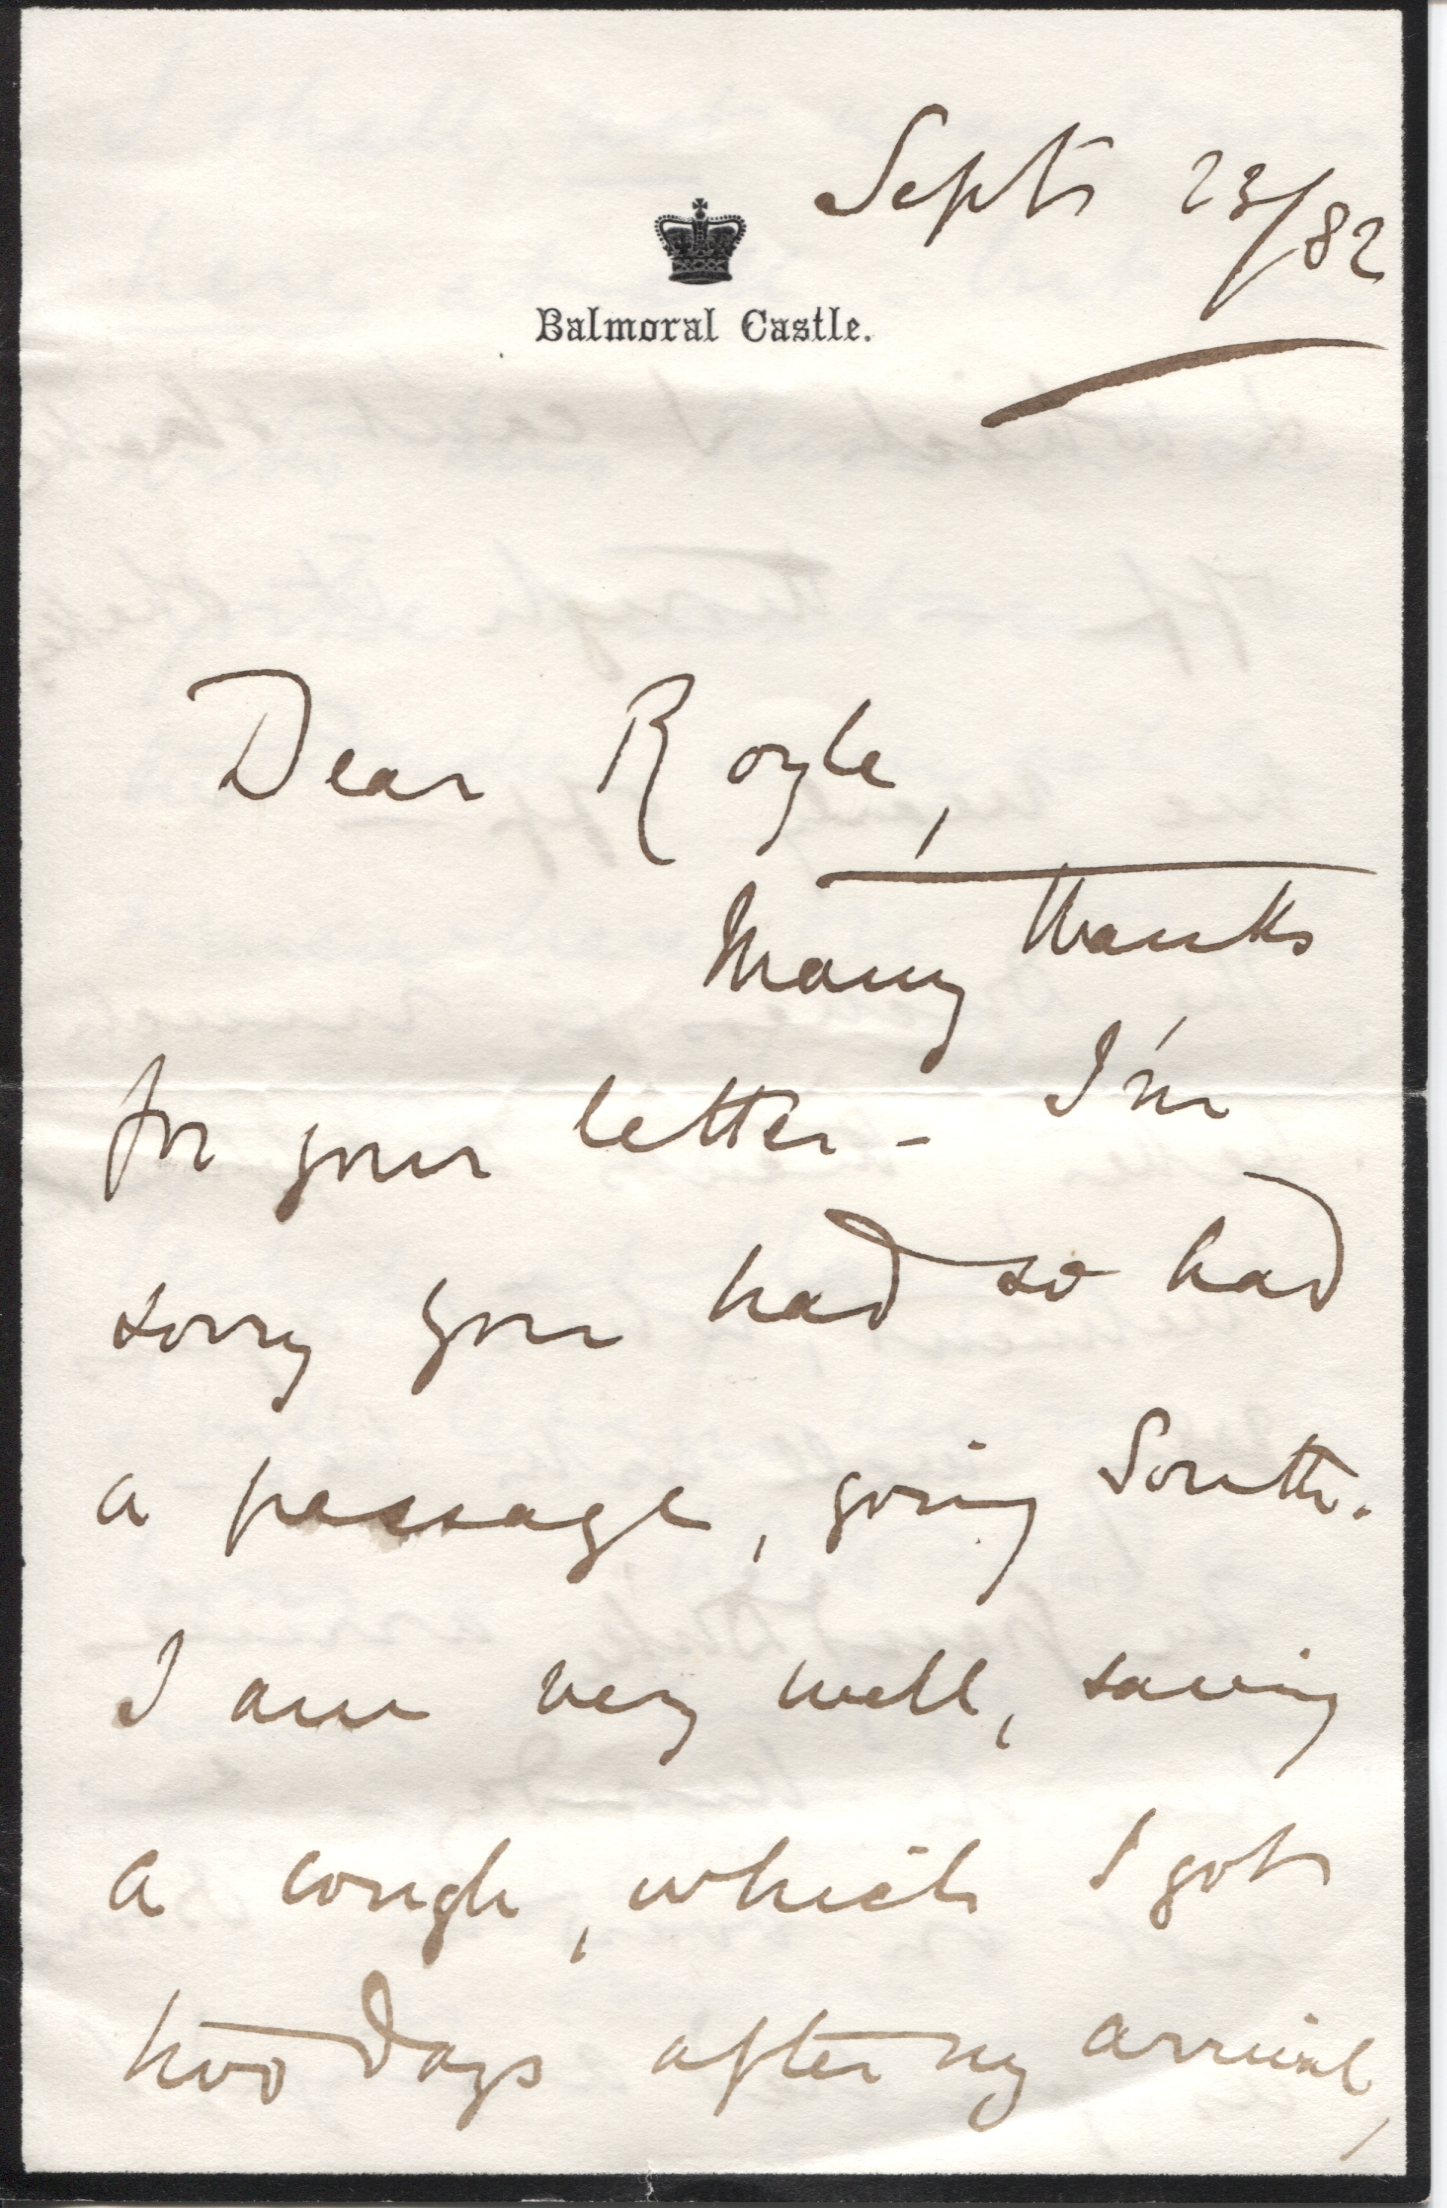 Sept 23/82
Balmoral Castle.
Dear Royle,
Many thanks
for your letter - I'm
sorry you had so bad
a passage, going South.
I am very well, saving
a cough, which I got
two days after my arrival,